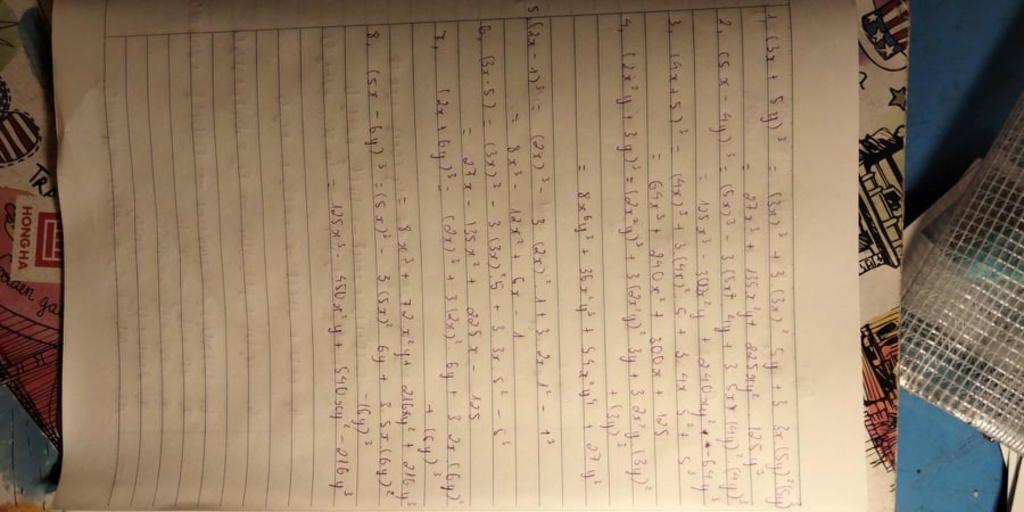 1, (3x + 5y)³ = (3x)³ + 3 (3x)² 5y + 3 3x (5y)² (5y)³
= 27x³ + 135x²y + 225xy² 125y³
2, (5x - 4y)³ = (5x)³ - 3 (5x)² 4y + 3 5x (4y)² (4y)³
= 125x³ - 300x²y + 240xy² - 64y³
3, (4x + 5)³ = (4x)³ + 3 (4x)² 5 + 3 4x 5² + 5³
= 64x³ + 240x² + 300x + 125
4, (2x²y + 3y)³ = (2x²y)³ + 3 (2x²y)² 3y + 3 2x²y (3y)²
+ (3y)³
= 8x⁶y³ + 36x⁴y³ + 54x²y³ + 27y³
5, (2x - 1)³ = (2x)³ - 3 (2x)² 1 + 3 2x 1² - 1³
= 8x³ - 12x² + 6x - 1
6, (3x - 5) = (3x)³ - 3 (3x)² 5 + 3 3x 5² - 5³
= 27x - 135x² + 225x - 125
7, (2x + 6y)³ = (2x)³ + 3 (2x)² 6y + 3 2x (6y)²
+ (6y)³
= 8x³ + 72x²y + 216xy² + 216y³
8, (5x - 6y)³ = (5x)³ - 3 (5x)² 6y + 3 5x (6y)²
- (6y)³
= 125x³ - 450x²y + 540xy² - 216y³
HONG HA